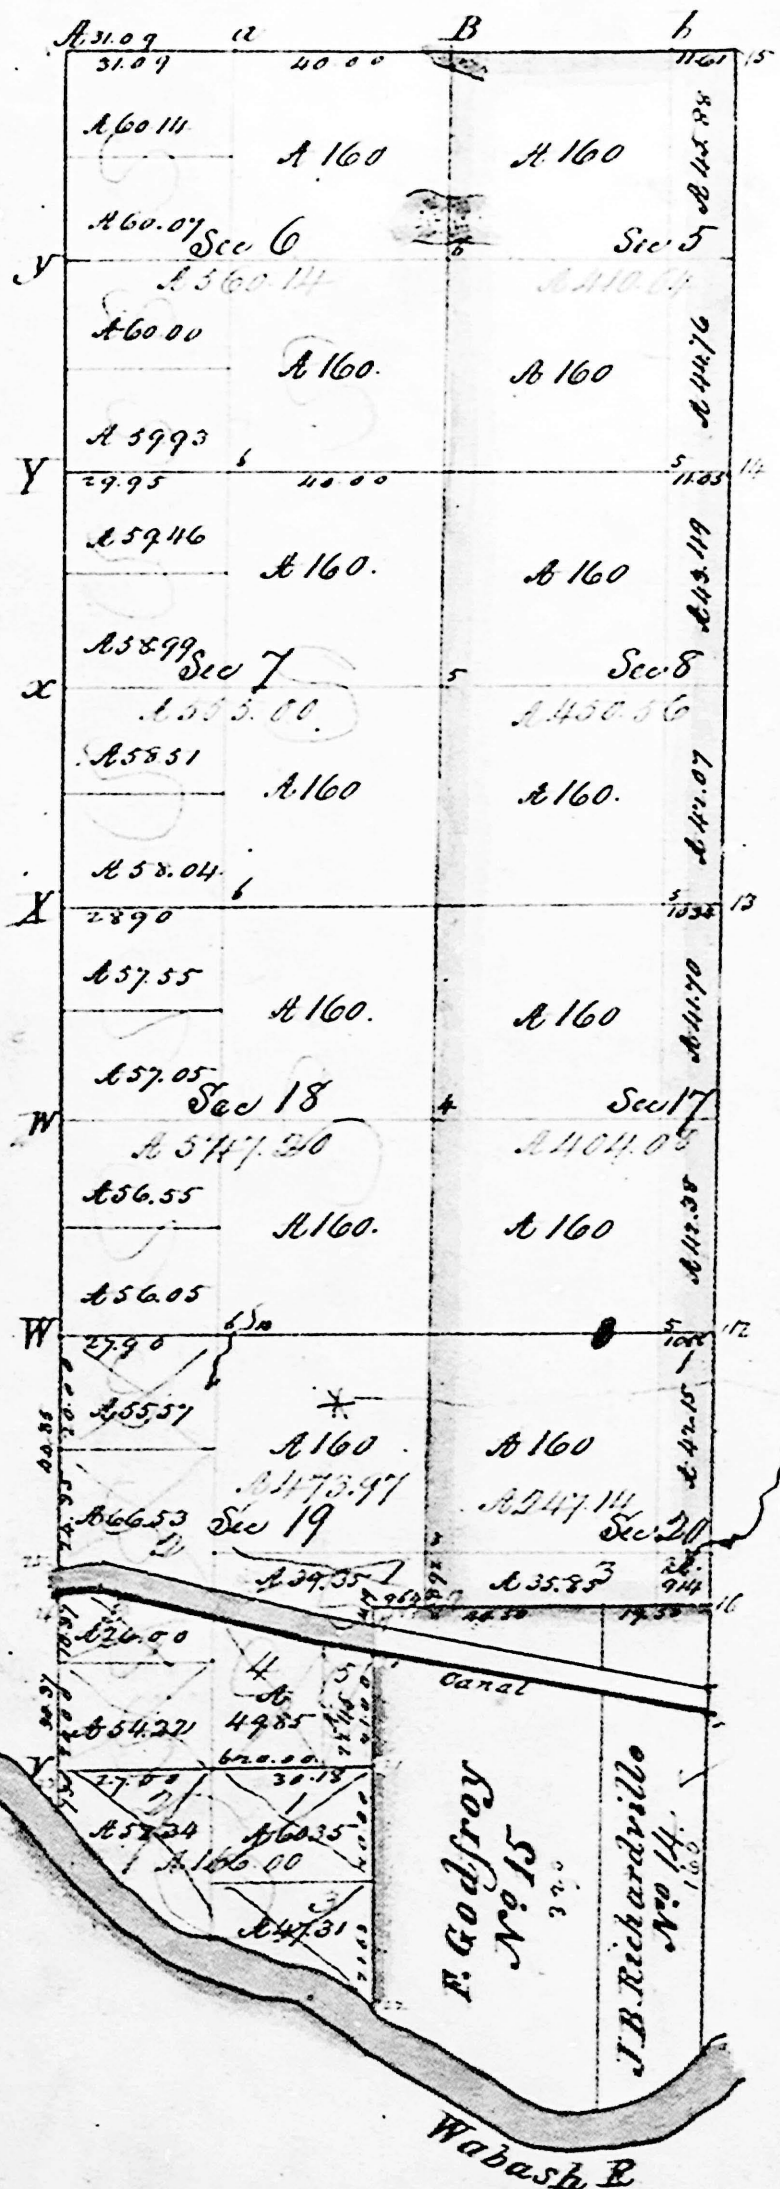 A 31.09 a B b
31.09 40.00 11.61 15
A 60.14
A 160 A 160 A 45.88
A 60.07
Sec 6 6 Sec 5
y
A 560.14 A 410.64
A 60.00
A 160. A 160 A 44.76
A 59.93
Y 6 5 14
29.95 40.00 11.03
A 59.46
A 160. A 160 A 43.49
A 58.99
Sec 7 5 Sec 8
x
A 58.51
A 160 A 160. A 42.07
A 58.04
X 6 5 13
28.90
A 57.55
A 160. A 160 A 41.70
A 57.05
Sec 18 4 Sec 17
W
A 404.08
A 56.55
A 160. A 160 A 42.38
A 56.05
W 6 5 12
27.90
A 55.57
A 160 A 160 A 42.15
A 473.97 A 247.14
A 66.53 Sec 19 Sec 20
2
A 39.35 1 A 35.85 3
16
A 26.00
4
A
49.85
Canal
A 54.22
V
27.00 30.18
A 52.34 A 60.35
A 166.00
3
A 47.31
F. Godfroy
No 15
320
J.B. Richardville
No 14.
160
Wabash R